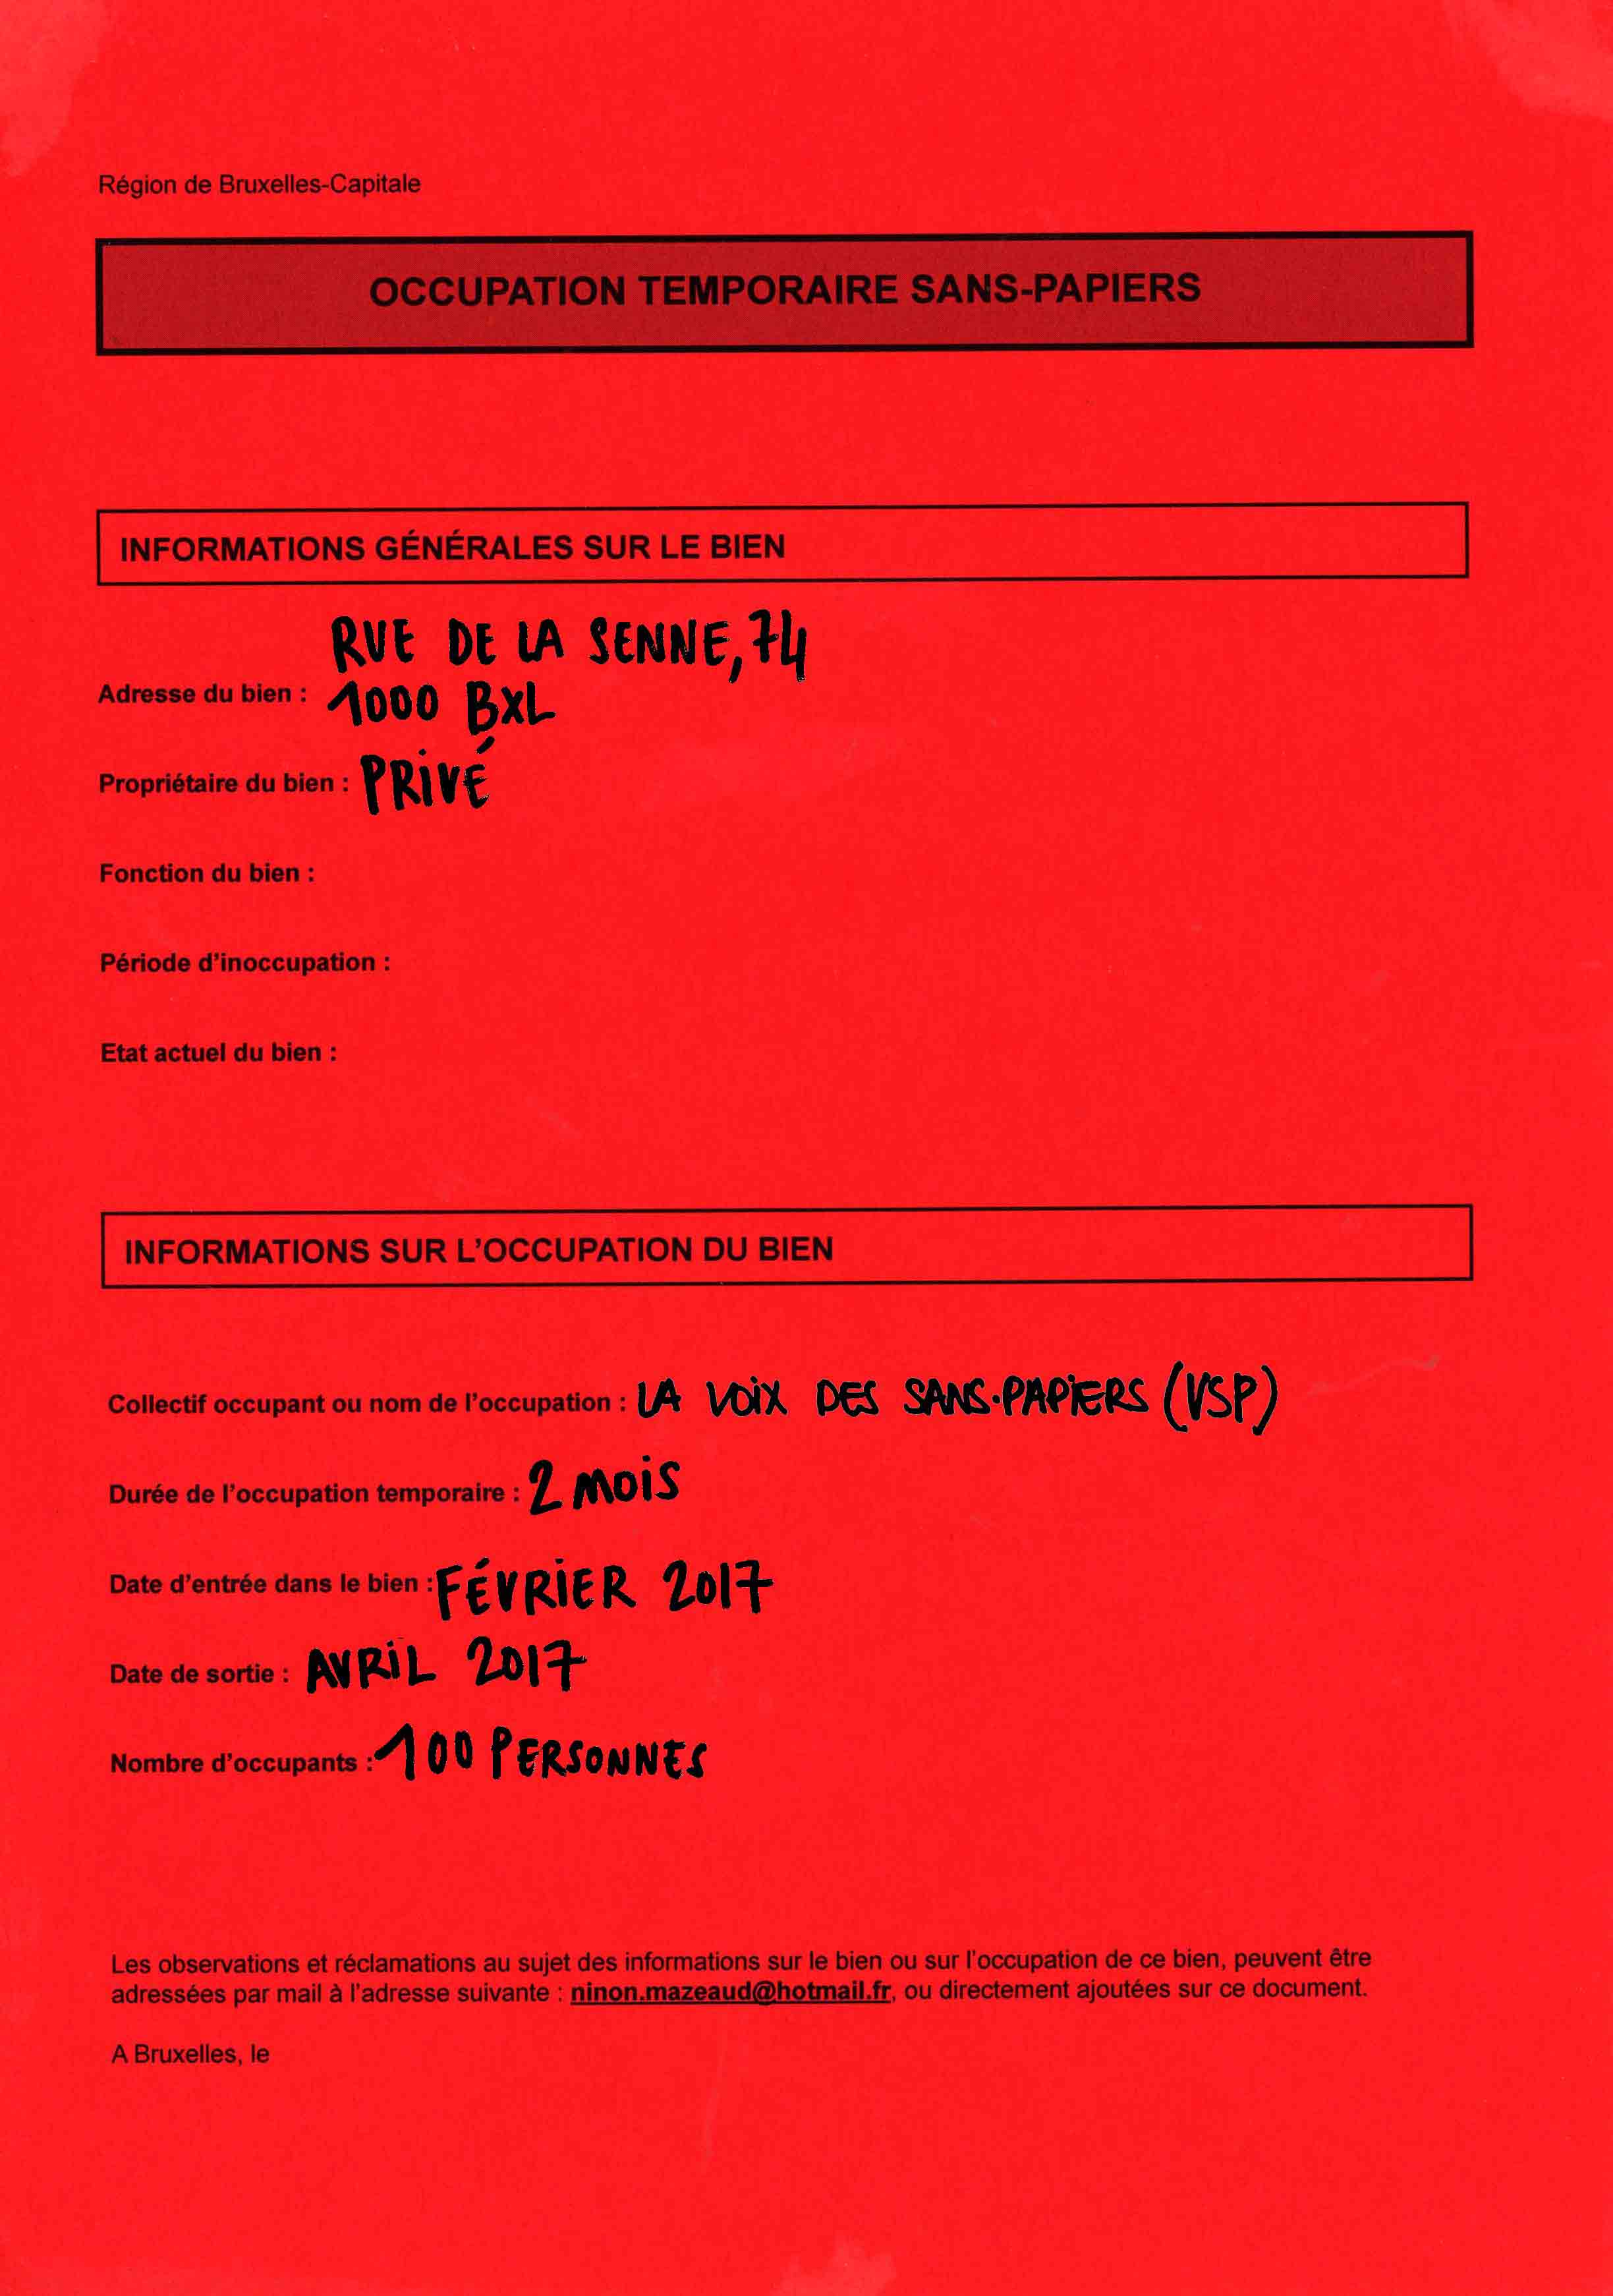 Région de Bruxelles-Capitale
OCCUPATION TEMPORAIRE SANS-PAPIERS
INFORMATIONS GÉNÉRALES SUR LE BIEN
RUE DE LA SENNE, 74
Adresse du bien : 1000 BXL
Propriétaire du bien : PRIVÉ
Fonction du bien :
Période d'inoccupation :
Etat actuel du bien :
INFORMATIONS SUR L'OCCUPATION DU BIEN
Collectif occupant ou nom de l'occupation : LA VOIX DES SANS-PAPIERS (VSP)
Durée de l'occupation temporaire : 2 MOIS
Date d'entrée dans le bien : FÉVRIER 2017
Date de sortie : AVRIL 2017
Nombre d'occupants : 100 PERSONNES
Les observations et réclamations au sujet des informations sur le bien ou sur l'occupation de ce bien, peuvent être
adressées par mail à l'adresse suivante : ninon.mazeaud@hotmail.fr, ou directement ajoutées sur ce document.
A Bruxelles, le